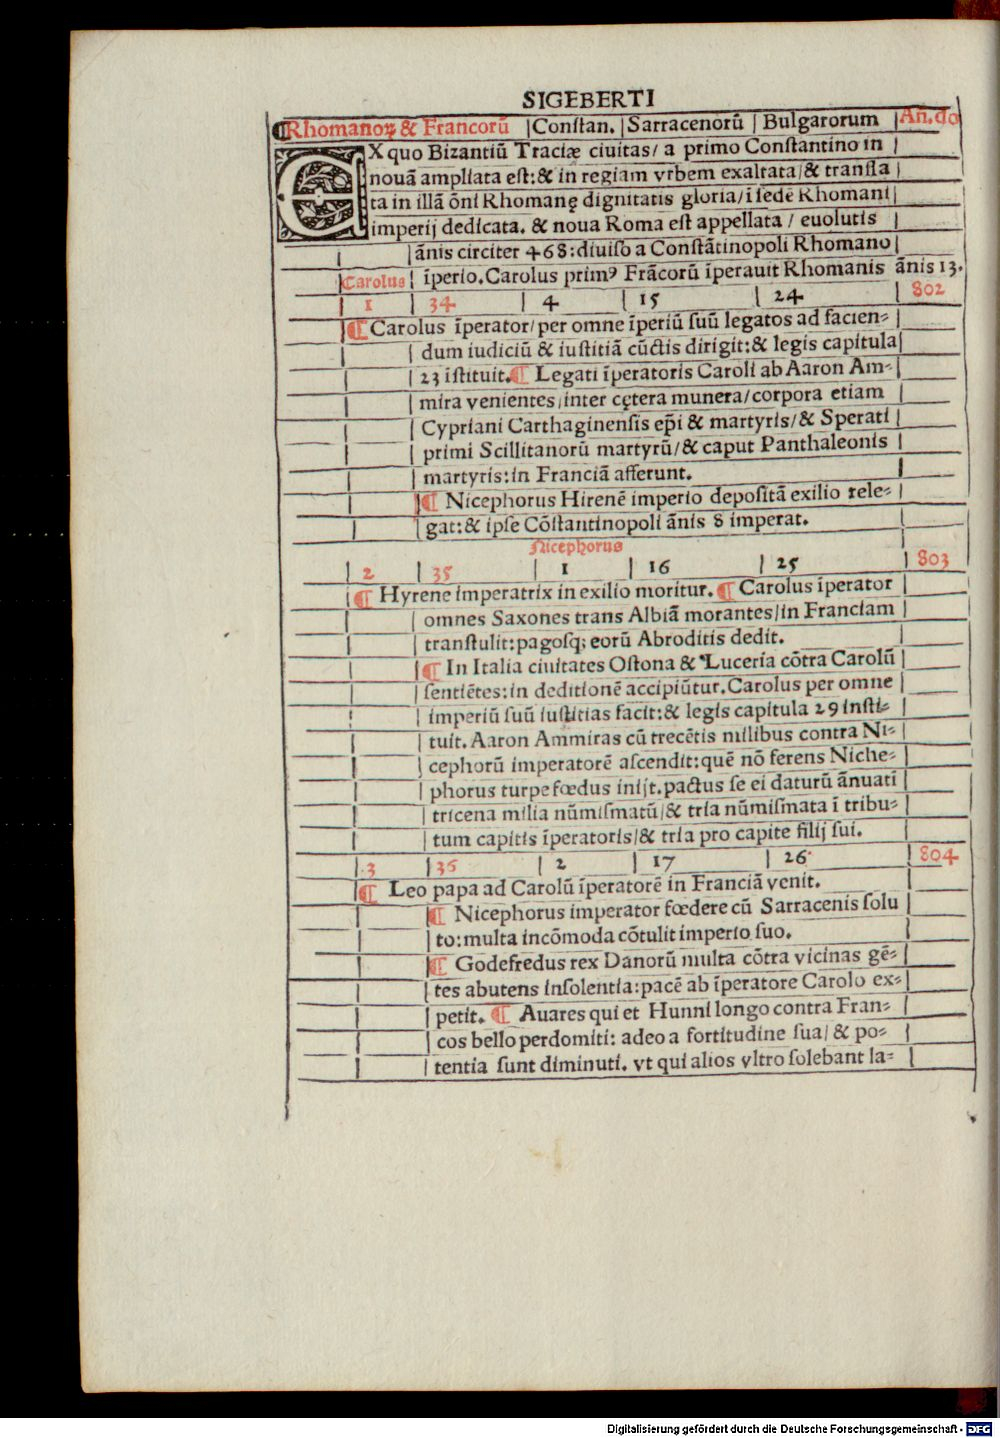 SIGEBERTI
¶Rhomanoꝝ & Francorũ |Conſtan. |Sarracenorũ | Bulgarorum |Añ.do
EX quo Bizantiũ Traciæ ciuitas/ a primo Conſtantino in
nouã ampliata eſt:& in regiam vrbem exaltata/& tranſla
ta in illã õnĩ Rhomanę dignitatis gloria/ĩ ſedẽ Rhomani
imperij dedicata. & noua Roma eſt appellata / euolutis
ãnis circiter 468:diuiſo a Conſtãtinopoli Rhomano
Carolus ĩperio.Carolus primꝰ Frãcorũ ĩperauit Rhomanis ãnis 13.
1 | 34 | 4 | 15 | 24 802
¶ Carolus ĩperator/per omne ĩperiũ ſuũ legatos ad facien⸗
dum iudiciũ & iuſtitiã cũctis dirigit:& legis capitula
23 iſtituit.¶ Legati ĩperatoris Caroli ab Aaron Am⸗
mira venientes/inter cętera munera/corpora etiam
Cypriani Carthaginenſis ep̃i & martyris/& Sperati
primi Scillitanorũ martyrũ/& caput Panthaleonis
martyris:in Franciã afferunt.
¶ Nicephorus Hirenẽ imperio depoſitã exilio rele⸗
gat:& ipſe Cõſtantinopoli ãnis 8 imperat.
Nicephorus
2 | 35 | 1 | 16 | 25 | 803
¶ Hyrene imperatrix in exilio moritur. ¶ Carolus ĩperator
omnes Saxones trans Albiã morantes/in Franciam
tranſtulit:pagoſq; eorũ Abroditis dedit.
¶ In Italia ciuitates Oſtona & Luceria cõtra Carolũ
ſentiẽtes:in deditionẽ accipiũtur.Carolus per omne
imperiũ ſuũ iuſtitias facit:& legis capitula 29 inſti⸗
tuit. Aaron Ammiras cũ trecẽtis milibus contra Ni⸗
cephorũ imperatorẽ aſcendit:quẽ nõ ferens Niche⸗
phorus turpe fœdus inijt.pactus ſe ei daturũ ãnuati
tricena milia nũmiſmatũ/& tria nũmiſmata ĩ tribu⸗
tum capitis ĩperatoris/& tria pro capite filij ſui.
3 | 36 | 2 | 17 | 26 | 804
¶ Leo papa ad Carolũ ĩperatorẽ in Franciã venit.
¶ Nicephorus imperator fœdere cũ Sarracenis ſolu
to:multa incõmoda cõtulit imperio ſuo.
¶ Godefredus rex Danorũ multa cõtra vicinas gẽ⸗
tes abutens inſolentia:pacẽ ab ĩperatore Carolo ex⸗
petit. ¶ Auares qui et Hunni longo contra Fran⸗
cos bello perdomiti: adeo a fortitudine ſua/ & po⸗
tentia ſunt diminuti. vt qui alios vltro ſolebant la⸗
Digitalisierung gefördert durch die Deutsche Forschungsgemeinschaft - DFG